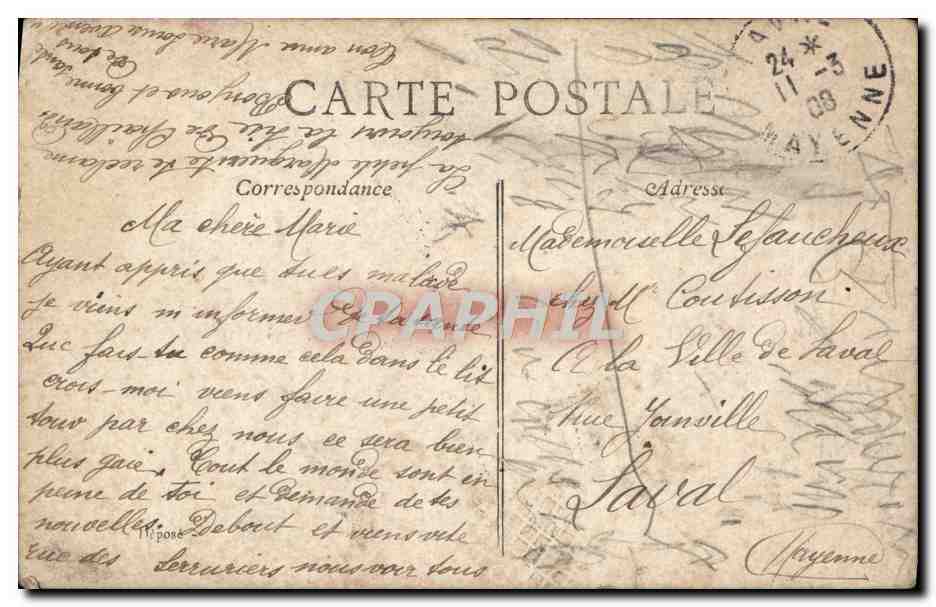 CARTE POSTALE
Correspondance
Adresse
Ma chère Marie
Ayant appris que tu es malade
je viens m informer de ta santé
Que fais tu comme cela dans le lit
crois-moi viens faire une petit
tour par chez nous ce sera bien
plus gaie. Tout le monde sont en
peine de toi et demande de tes
nouvelles. Debout et viens vite
rue des Serruriers nous voir tous
La petite Marguerite te réclame
toujours la fille de Chailland.
Bonjour et bonne santé
de tous
Ton amie Marie Louise
Déposé
Mademoiselle Lefaucheux
chez Mr Coutisson
A la Ville de Laval
rue Joinville
Laval
Mayenne
24 *
11 -3
08
MAYENNE
CPARPHIL